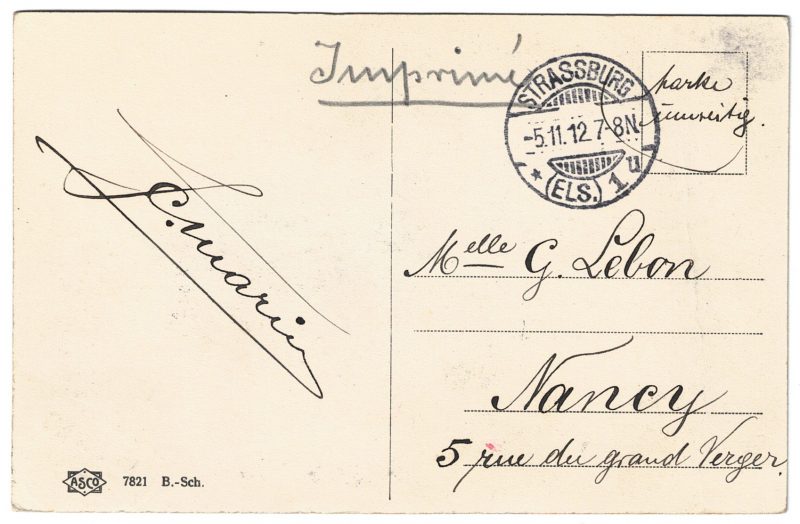 Imprimé
STRASSBURG
-5.11.12.7-8N.
* (ELS.) 1 u
Marke
C. Marin
Melle G. Lebon
Nancy
5 rue du grand Verger.
ASCO 7821 B.-Sch.